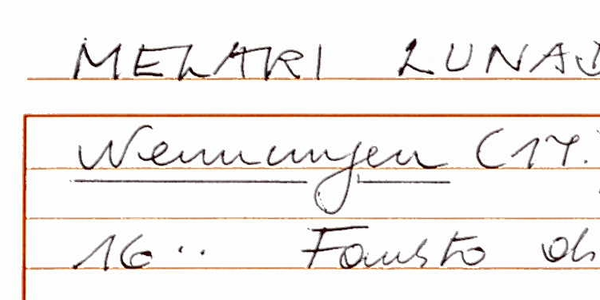 MELARI LUNA
Nennungen (17.
16.. Fausto